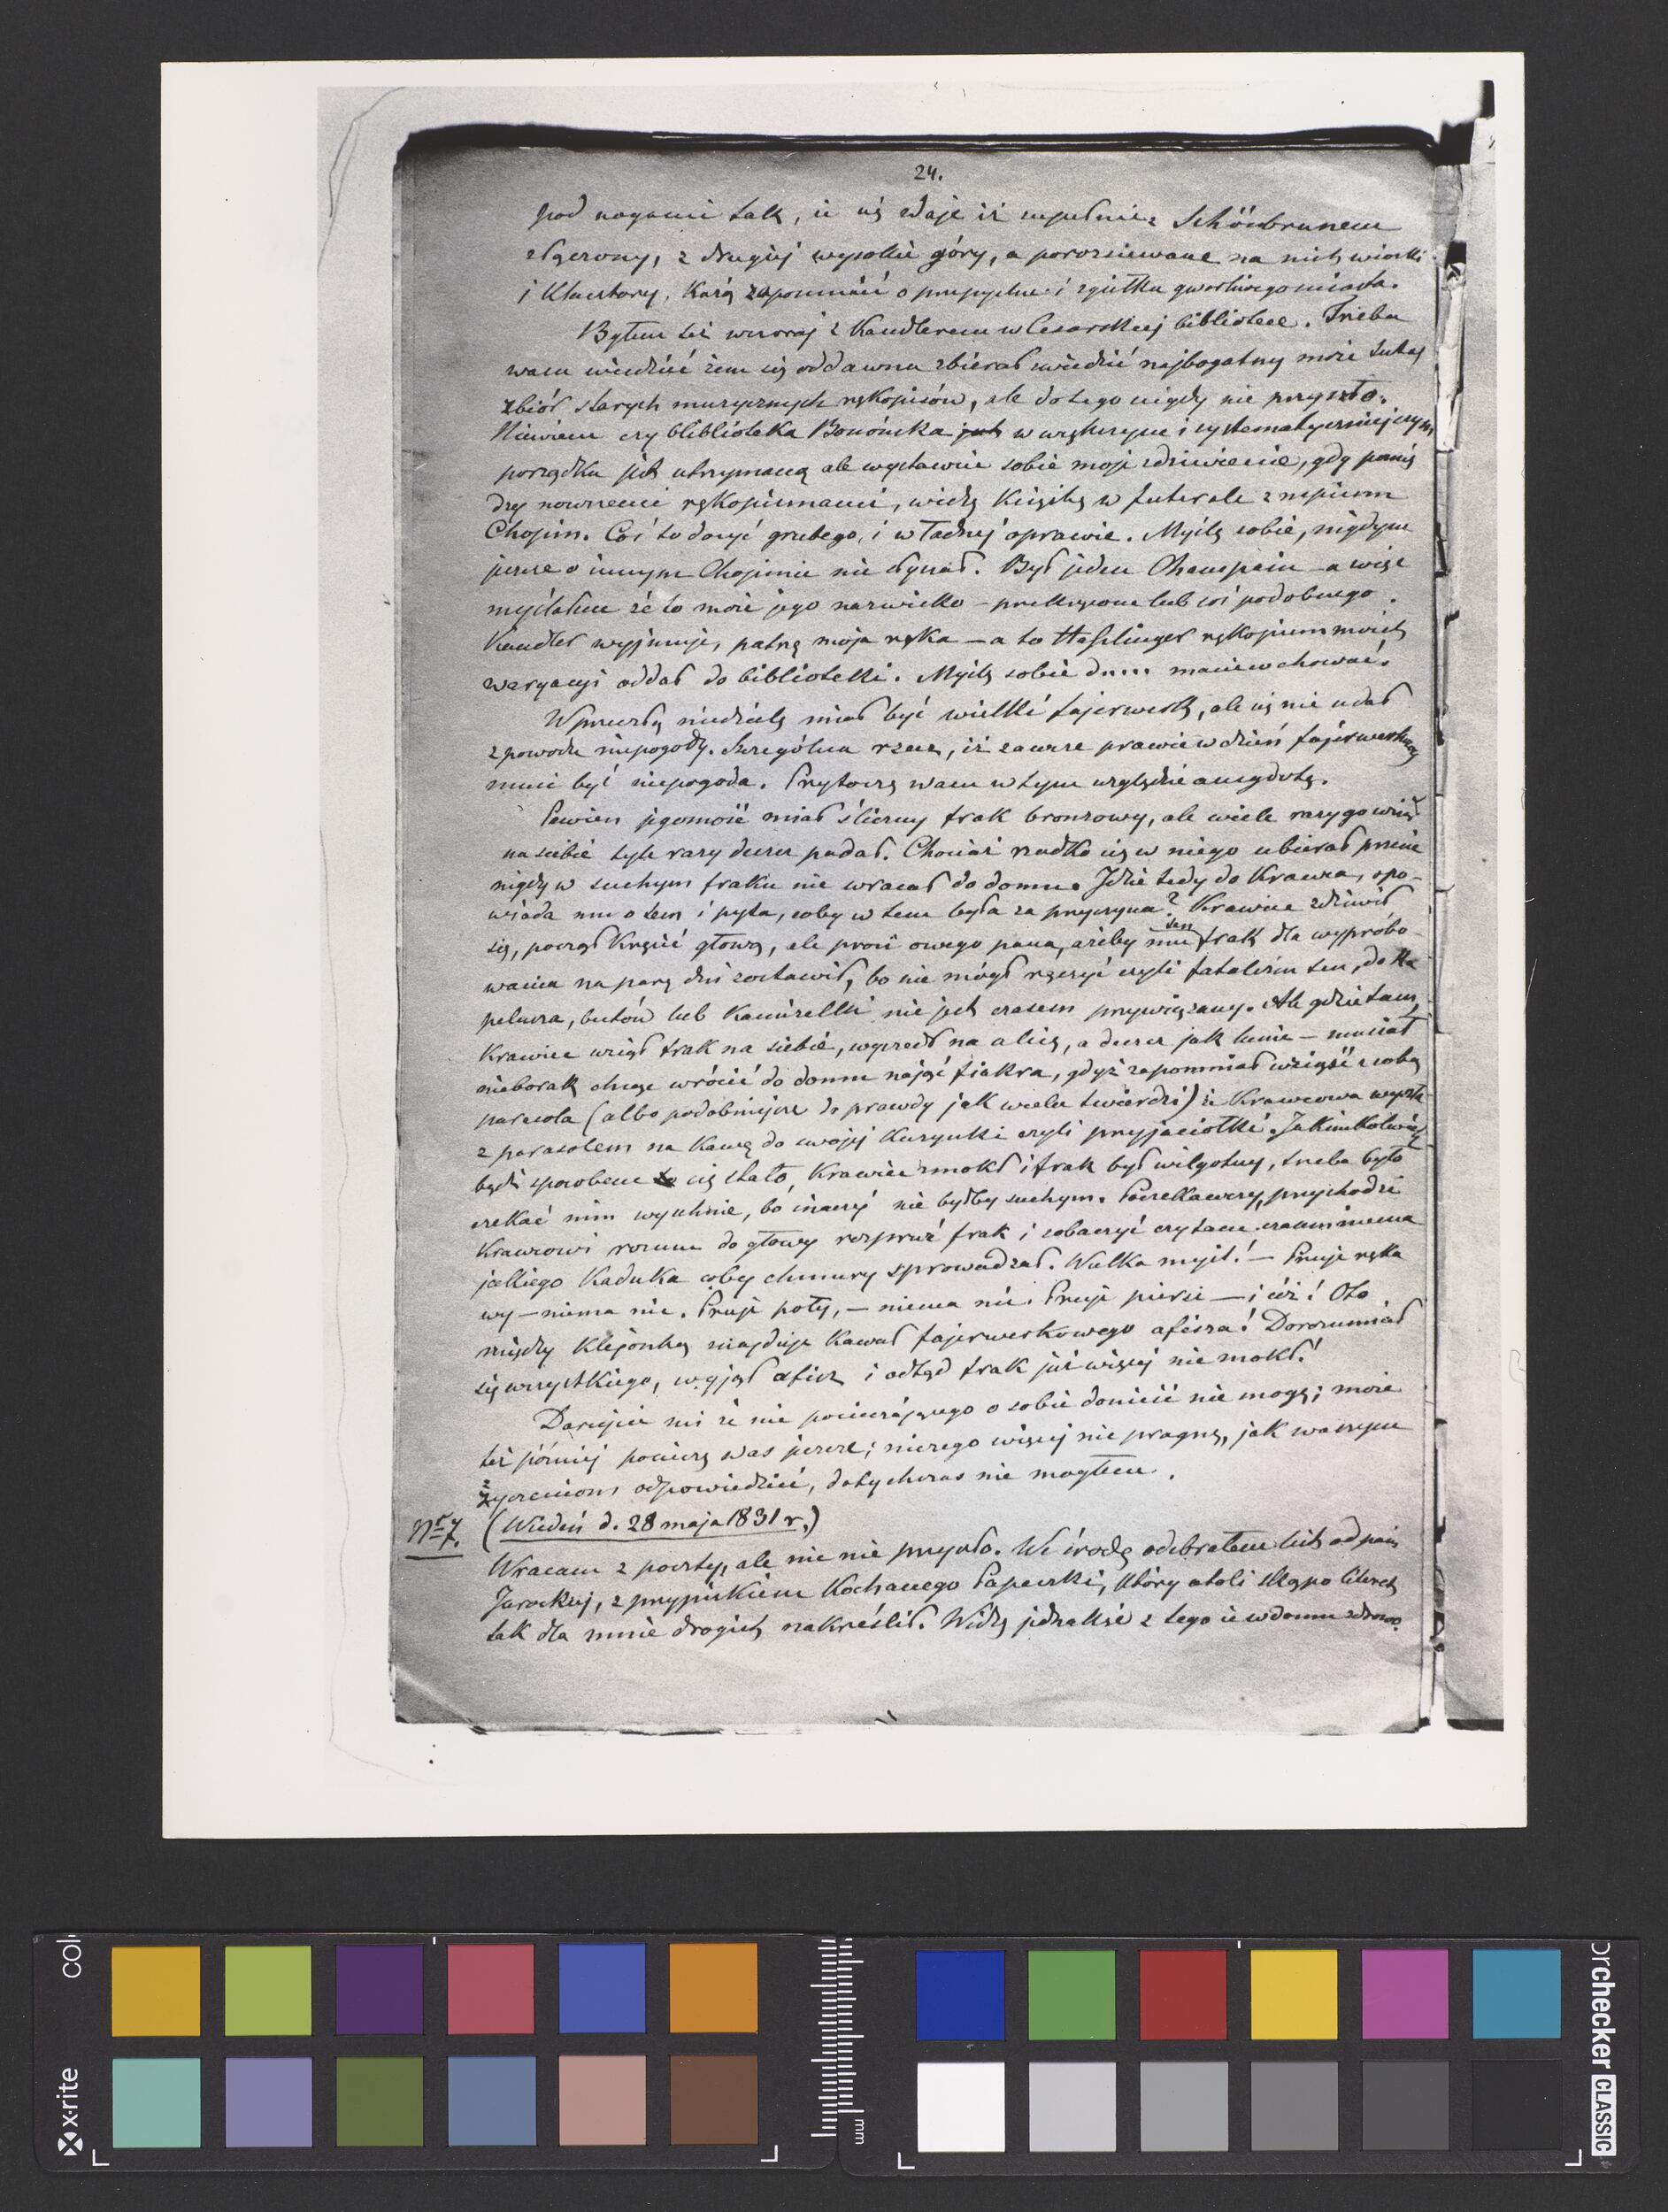 24.
pod nogami tak, iż się zdaje iż zupełnie z Schönbrunem
złączony, z drugiej wysokie góry, a porozsiewane na nich wioski
i klasztory, każą zapomnieć o przepychu i zgiełku gwarliwego miasta.
Byłem też wczoraj z Kandlerem w Cesarskiej bibliotece. Trzeba
wam wiedzieć żem się oddawna zbierał zwiedzić najbogatszy może tutaj
zbiór starych muzycznych rękopisów, ale do tego nigdy nie przyszło.
Niewiem czy bliblioteka Bonońska jest w większym i systematyczniejszym
porządku jest utrzymaną ale wystawcie sobie moje zdziwienie, gdy pomię
dzy nowszemi rękopismami, widzę książkę w futerale z napisem
Chopin. Coś to dosyć grubego, i w ładnej oprawie. Myślę sobie, nigdym
jeszcze o innym Chopinie nie słyszał. Był jeden Champein – a więc
myślałem że to może jego nazwisko – przekręcone lub coś podobnego.
Kandler wyjmuje, patrzę moja ręka – a to Haslinger rękopism moich
waryacyi oddał do biblioteki. Myślę sobie du... macie w chować.
W przeszłą niedzielę miał być wielki fajerwerk, ale się nie udał
z powodu niepogody. Szczególna rzecz, iż zawsze prawie w dzień fajerwerkowy
musi być niepogoda. Przytoczę wam w tym względzie anegdotę.
Pewien jegomość miał śliczny frak bronzowy, ale wiele razy go wziął
na siebie tyle razy deszcz padał. Chociaż rzadko się w niego ubierał przecie
nigdy w suchym fraku nie wracał do domu. Idzie tedy do Krawca, opo-
wiada mu o tem i pyta, coby w tem była za przyczyna? Krawiec zdziwił
się, począł kręcić głową, ale prosił owego pana, ażeby mu ten frak dla wypróbo-
wania na parę dni zostawił, bo nie mógł ręczyć czyli fatalizm ten, do ka
pelusza, butów lub kamizelki nie jest czasem przywiązany. Ale gdzie tam,
krawiec wziął frak na siebie, wyszedł na ulicę, a deszcz jak lunie – musiał
nieborak chcąc wrócić do domu nająć fiakra, gdyż zapomniał wziąść z sobą
parasola (albo podobniejsze do prawdy jak wielu twierdzi) iż Krawcowa wyszła
z parasolem na kawę do swojej kuzynki czyli przyjaciołki. Jakimkolwiek
bądź sposobem to się stało, Krawiec zmokł i frak był wilgotny, trzeba było
czekać nim wyschnie, bo inaczej nie byłby suchym. Poczekawszy, przychodzi
Krawcowi rozum do głowy rozpruć frak i zobaczyć czy tam czasami niema
jakiego kaduka coby chmury sprowadzał. Wielka myśl! – Pruje ręka
wy – niema nic. Pruje poły, – niema nic. Pruje piersi – i cóż! Oto
między klejonką znajduje kawał fajerwerkowego afisza! Dorozumiał
się wszystkiego, wyjął afisz i odtąd frak już więcej nie mokł!
Darujcie mi że nic pocieszającego o sobie donieść nie mogę; może
też później pocieszę was jeszcze; niczego więcej nie pragnę, jak waszym
życzeniom odpowiedzieć, dotychczas nie mogłem.
Nr 7. (Wiedeń d. 28 maja 1831 r.)
Wracam z poczty, ale nic nie przyszło. We środę odebrałem list od pani
Jarockiej, z przypiskiem Kochanego Papeczki, który atoli skąpo literek
tak dla mnie drogich nakreślił. Widzę jednakże z tego iż w domu zdrowo.